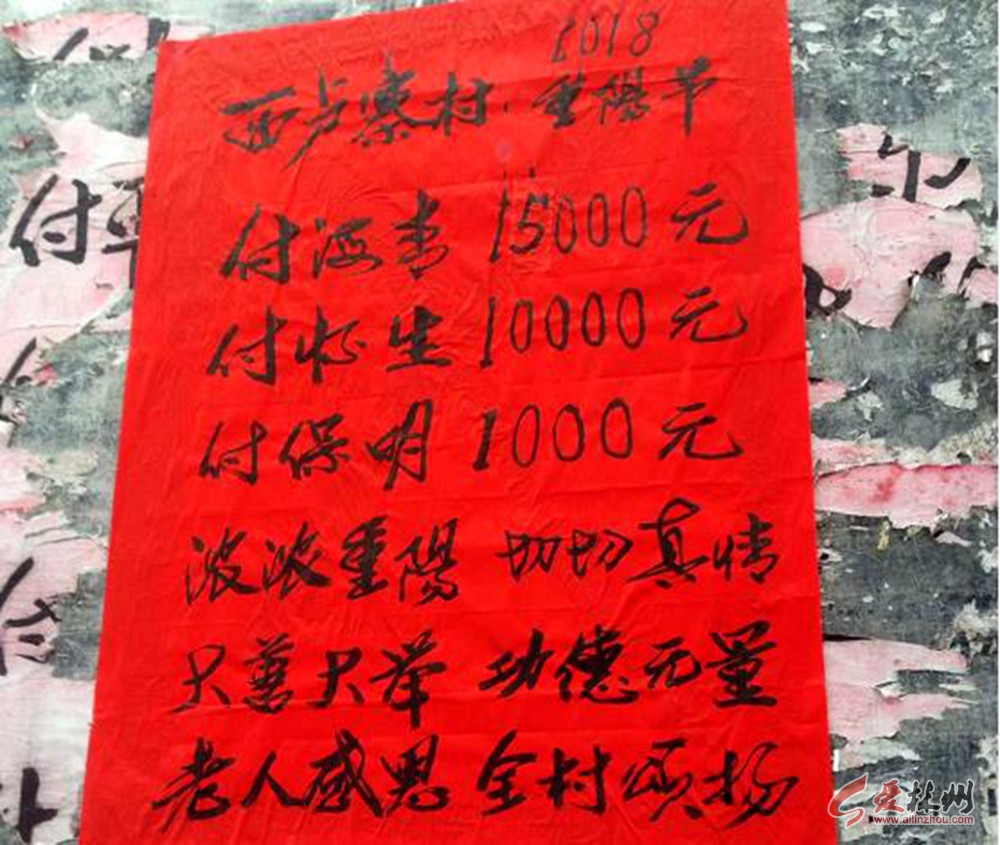 2018
西卢寨村 重陽节
付海青 15000元
付性生 10000元
付保明 1000元
浓浓重陽 切切真情
大善大举 功德无量
老人感恩 全村颂扬
付
爱林州
www.ailinzhou.com